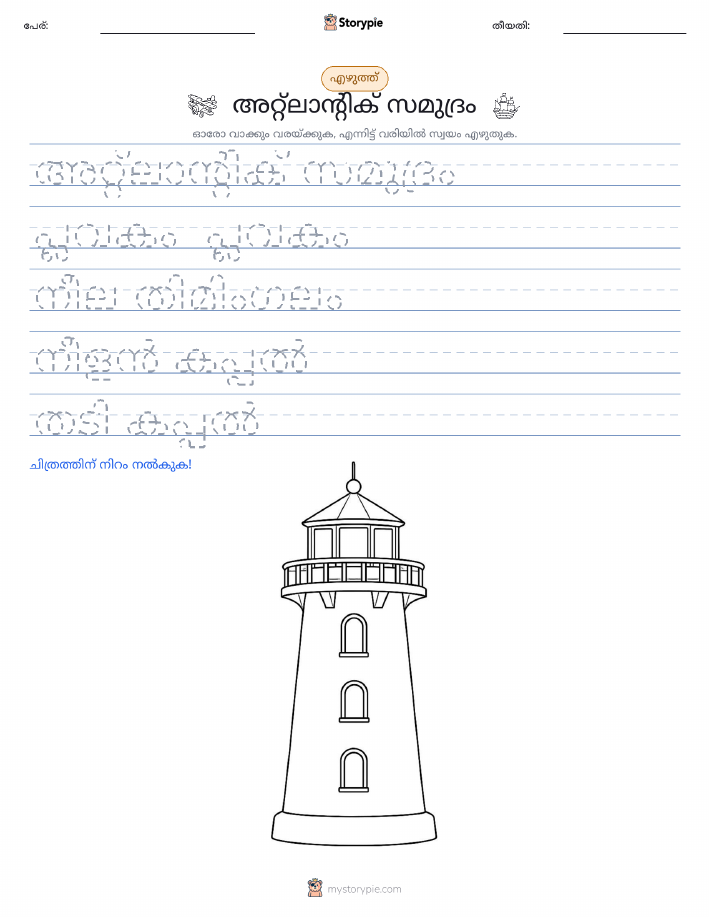 പേര്:
Storypie
തീയതി:
എഴുത്ത്
അറ്റ്ലാന്റിക് സമുദ്രം
ഓരോ വാക്കും വരയ്ക്കുക, എന്നിട്ട് വരിയിൽ സ്വയം എഴുതുക.
അറ്റ്ലാന്റിക് സമുദ്രം
പ്ലവകം പ്ലവകം
നീല തിമിംഗലം
നീളൻ കപ്പൽ
തടി കപ്പൽ
ചിത്രത്തിന് നിറം നൽകുക!
mystorypie.com